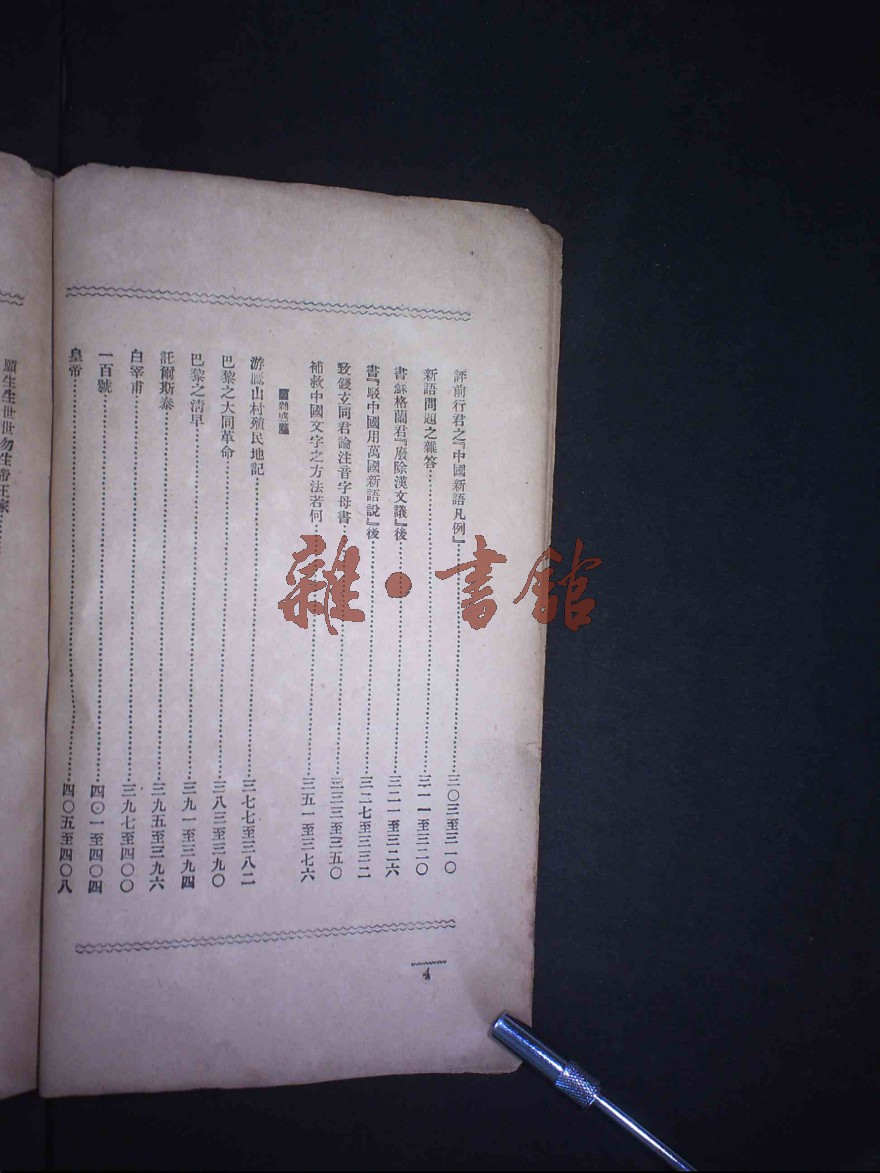 評前行君之『中國新語凡例』……三〇三至三一〇
新語問題之雜答……三一一至三二〇
書蘇格蘭君『廢除漢文議』後……三二一至三二六
書『駁中國用萬國新語說』後……三二七至三三二
致錢玄同君論注音字母書……三三三至三五〇
補救中國文字之方法若何……三五一至三七六
游鷹山村殖民地記……三七七至三八二
巴黎之大同革命……三八三至三九〇
巴黎之清早……三九一至三九四
託爾斯泰……三九五至三九六
白宰甫……三九七至四〇〇
一百號……四〇一至四〇四
皇帝……四〇五至四〇八
4
願生生世世勿生帝王家……
雜·書館